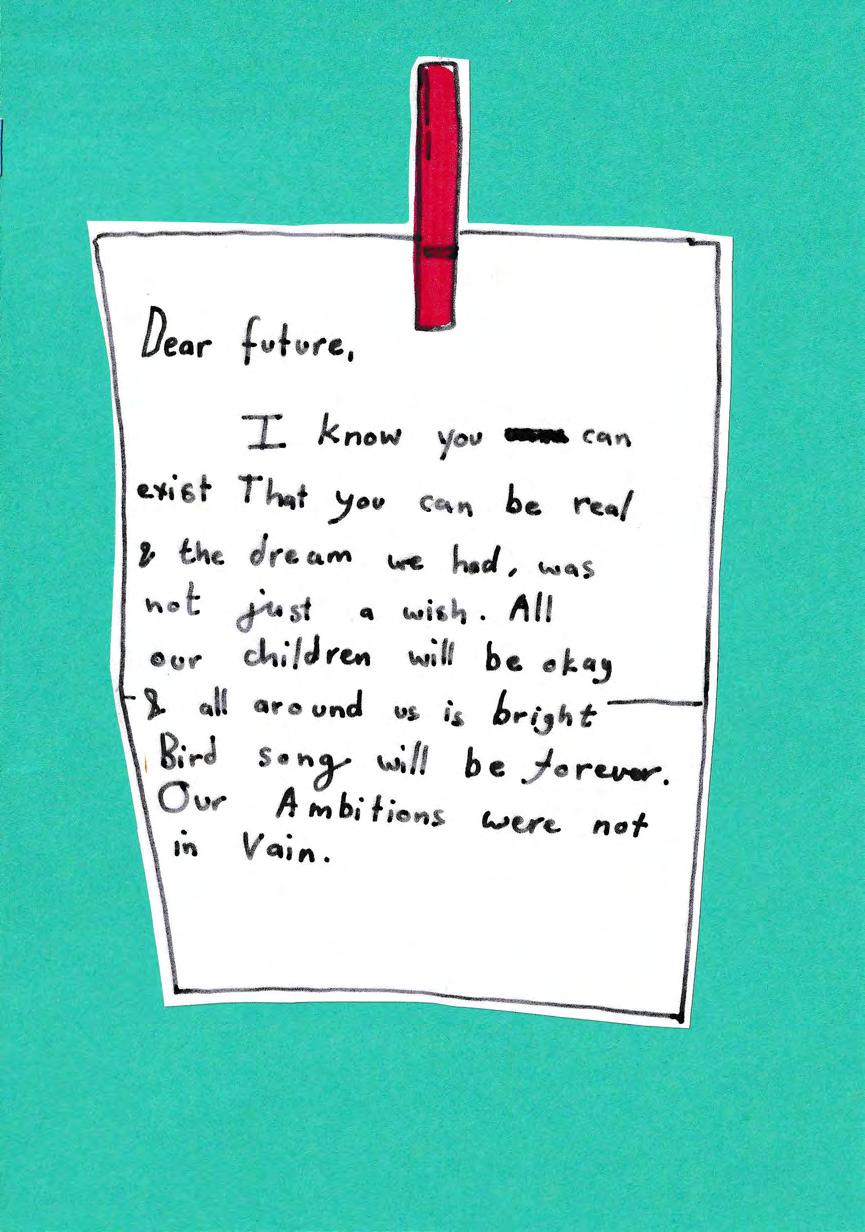 Dear future,
I know you can
exist That you can be real
& the dream we had, was
not just a wish. All
our children will be okay
& all around us is bright
Bird song will be forever.
Our Ambitions were not
in Vain.